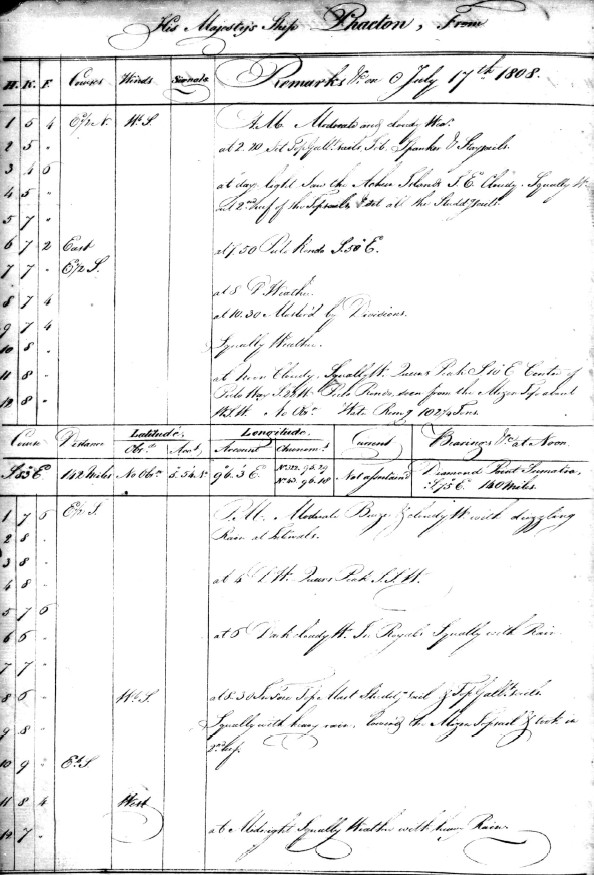 His Majesty's Ship Phaeton, From
H. K. F. Courses Winds Signals Remarks &c. on July 17th 1808.
1 5 4 E½N. WbS. A.M. Moderate and cloudy Wear.
2 5 " at 2.20 Set TopGallt. sails, Jib Spanker & Staysails.
3 4 6
at day light Saw the Acheen Islands S.E. Cloudy. Squally Wr.
4 5 " out 2nd reef of the Topsails & set all the Studdg. sails.
5 7 "
6 7 2 East at 7.50 Pulo Rondo S.50°E.
7 7 " E½S.
8 7 4 at 8 Do. Weather.
9 7 4 at 10.30 Muster'd by Divisions.
10 8 " Squally Weather.
11 8 " at Noon Cloudy Squally Wr. Queens Peak S10°E Center of
Pulo Way S.28W. Pulo Rondo, seen from the Mizen Top about
12 8 " W.S.W. No Obsn. Water Remg. 102¾ Tons.
Course Distance Latitude. Longitude. Current Bearings &c. at Noon.
Obsn. Acct. Account Chronomr.
S.53°E 142 Miles No Obsn. 5.54.N 96.3 E. No. 322. 96.29 Not ascertained Diamond Point Sumatra,
No. 43. 96.18 S75°E 140 Miles.
1 7 6 E½S. P.M. Moderate Breeze & cloudy Wr. with drizzling
2 8 " Rain at Intervals.
3 8 "
4 8 " at 4 Do. Wr. Queens Peak S.S.W.
5 7 6
6 6 " at 6 Dark cloudy Wr. In Royals Squally with Rain
7 7 "
8 6 " WbS. at 8.30 In Fore Top Mast Studdg. sail & TopGallt. sails
9 8 " Squally with heavy rain, lowered the Mizen Topsail & took in
10 9 " EbS 2nd reef.
11 8 4 West
12 7 " at Midnight Squally Weather with heavy Rain